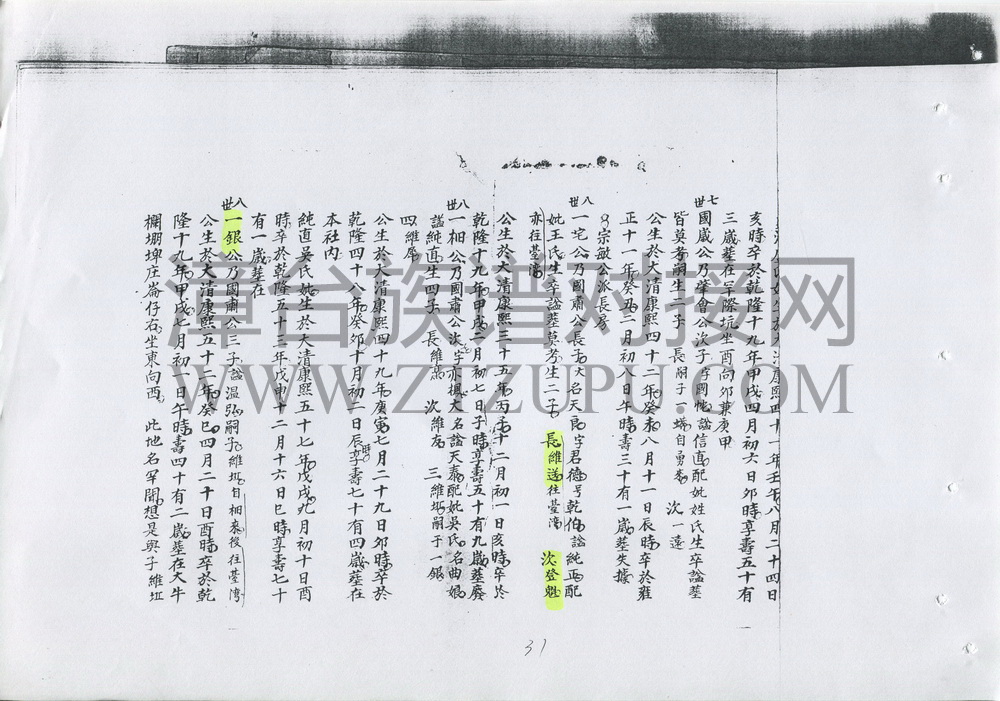 康熙四十一年壬午八月二十四日
亥時卒於乾隆十九年甲戌四月初六日卯時享壽五十有
三歲塟在罕際坑坐酉向卯兼庚甲
七世
國咸公乃肇會公次子字國愷諡信直配妣姓氏生卒諡塟
皆莫考嗣生二子 長嗣子一 自勇來 次一遠
公生於大清康熙四十二年癸未八月十一日辰時卒於雍
正十一年癸丑三月初八日午時壽三十有一歲塟失據
宗敏公派長房
八世
一宅公乃國肅公長子大名天 字君德号乾伯諡純正配
妣王氏生卒諡塟莫考生二子 長維送往臺灣 次登魁
亦往臺灣
公生於大清康熙三十五年丙子十二月初一日亥時卒於
乾隆十九年甲戌二月初七日子時享壽五十有九歲塟廢
八世
一相公乃國肅公次子字亦楓大名諡天泰配妣吳氏名曲娘
諡純直生四子 長維 次維 三維 嗣于一銀
四維犀
公生於大清康熙四十九年庚寅七月二十九日卯時卒於
乾隆四十八年癸卯十月初二日辰時享壽七十有四歲塟在
本社內
純直吳氏妣生於大清康熙五十七年戊戌九月初十日酉
時卒於乾隆五十三年戊申十二月十六日巳時享壽七十
有一歲塟在
八世
一銀公乃國肅公三子諡温弘嗣子維 自相來後往臺灣
公生於大清康熙五十二年癸巳四月二十日酉時卒於乾
隆十九年甲戌七月初一日午時壽四十有二歲塟在大牛
欄堋埤庄崙仔右坐東向西 此地名罕聞想是與子維
31
章台族谱对接网
WWW.ZTZUPU.COM